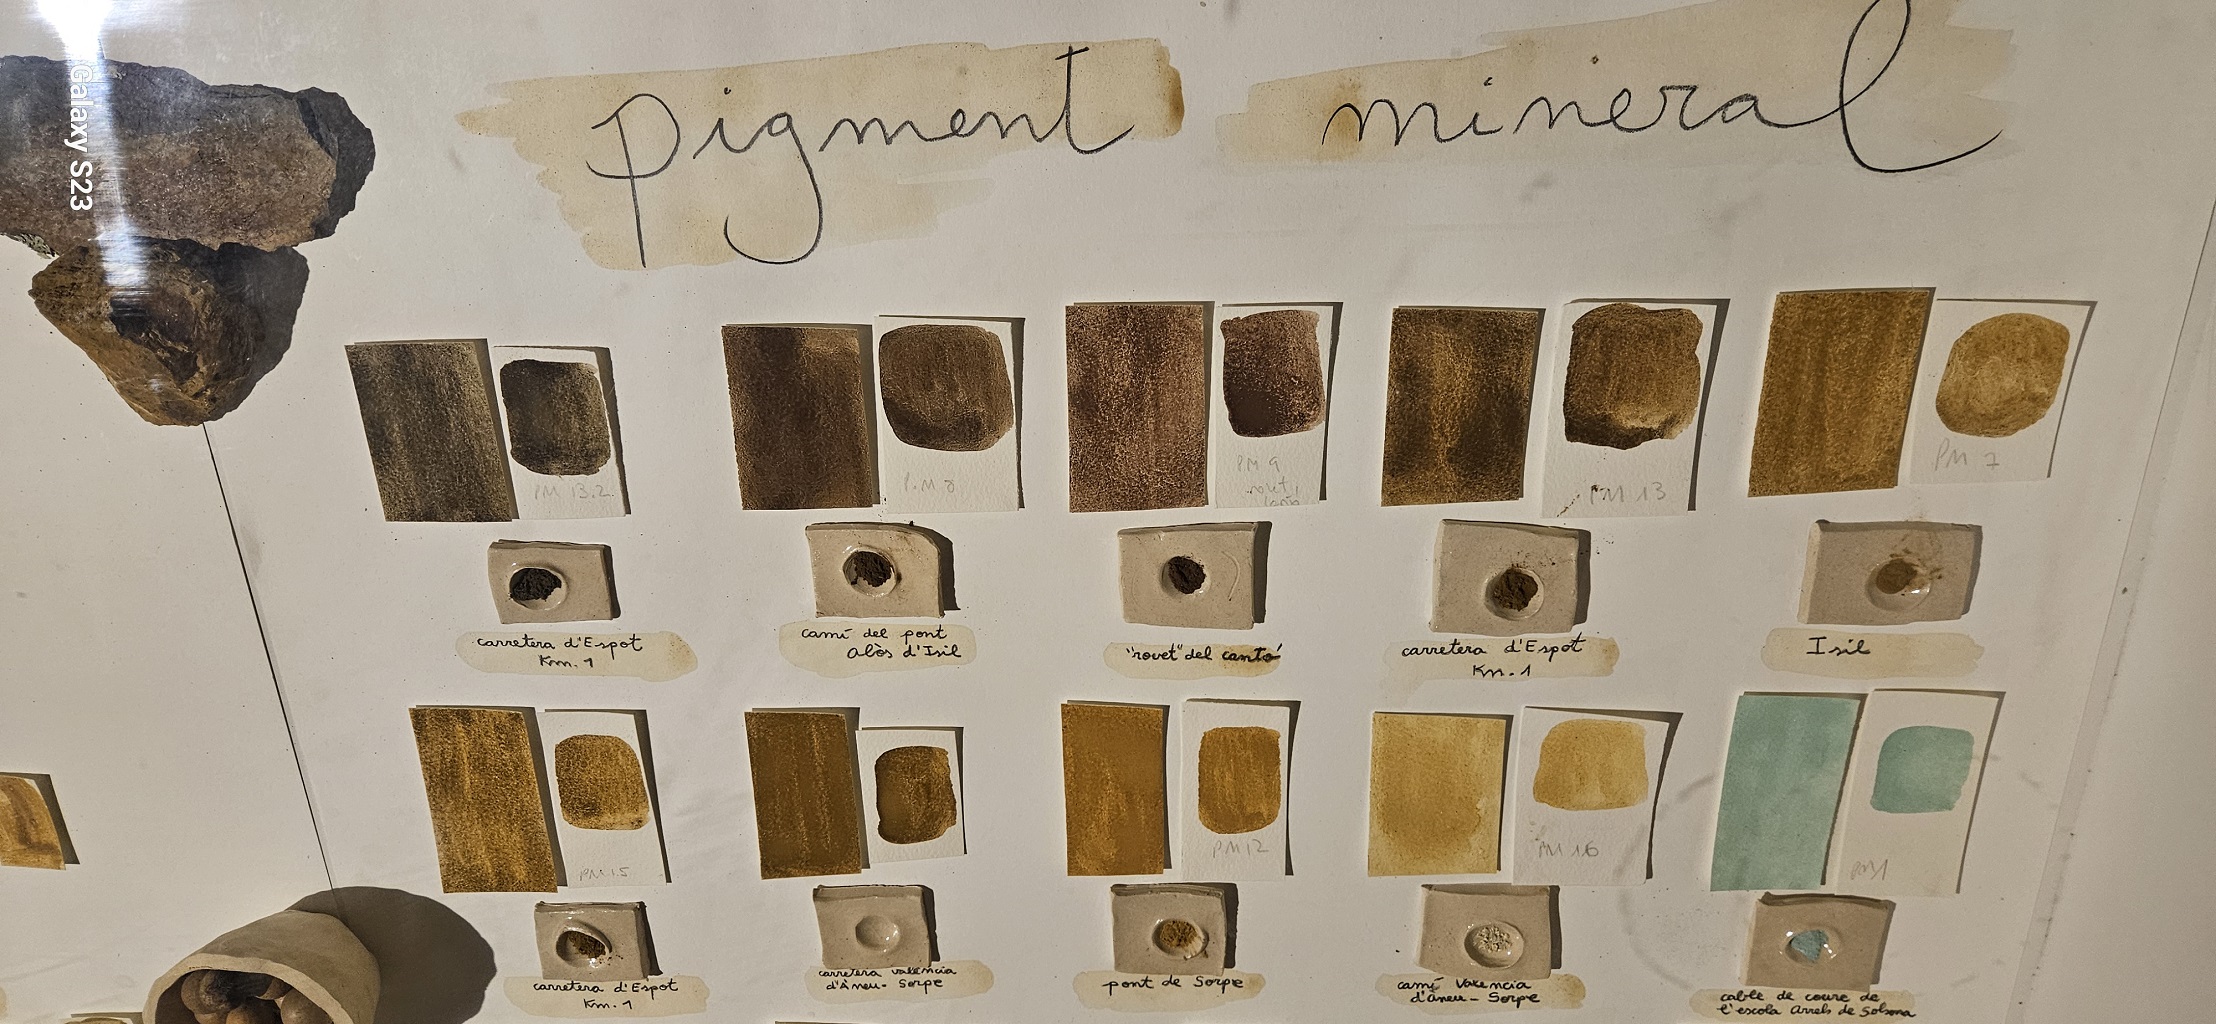 pigment mineral
Galaxy S23
PM 13.2
P.M 8
PM 9
PM 13
PM 7
carretera d'Espot
Km. 1
camí del pont
alòs d'Isil
"rovet" del cantó
carretera d'Espot
Km. 1
Isil
PM 15
PM 12
PM 16
PM 1
carretera d'Espot
Km. 1
carretera valència
d'Àneu - Sorpe
pont de Sorpe
camí Valencia
d'àneu - Sorpe
cable de coure de
l'escola Arrels de Solsona